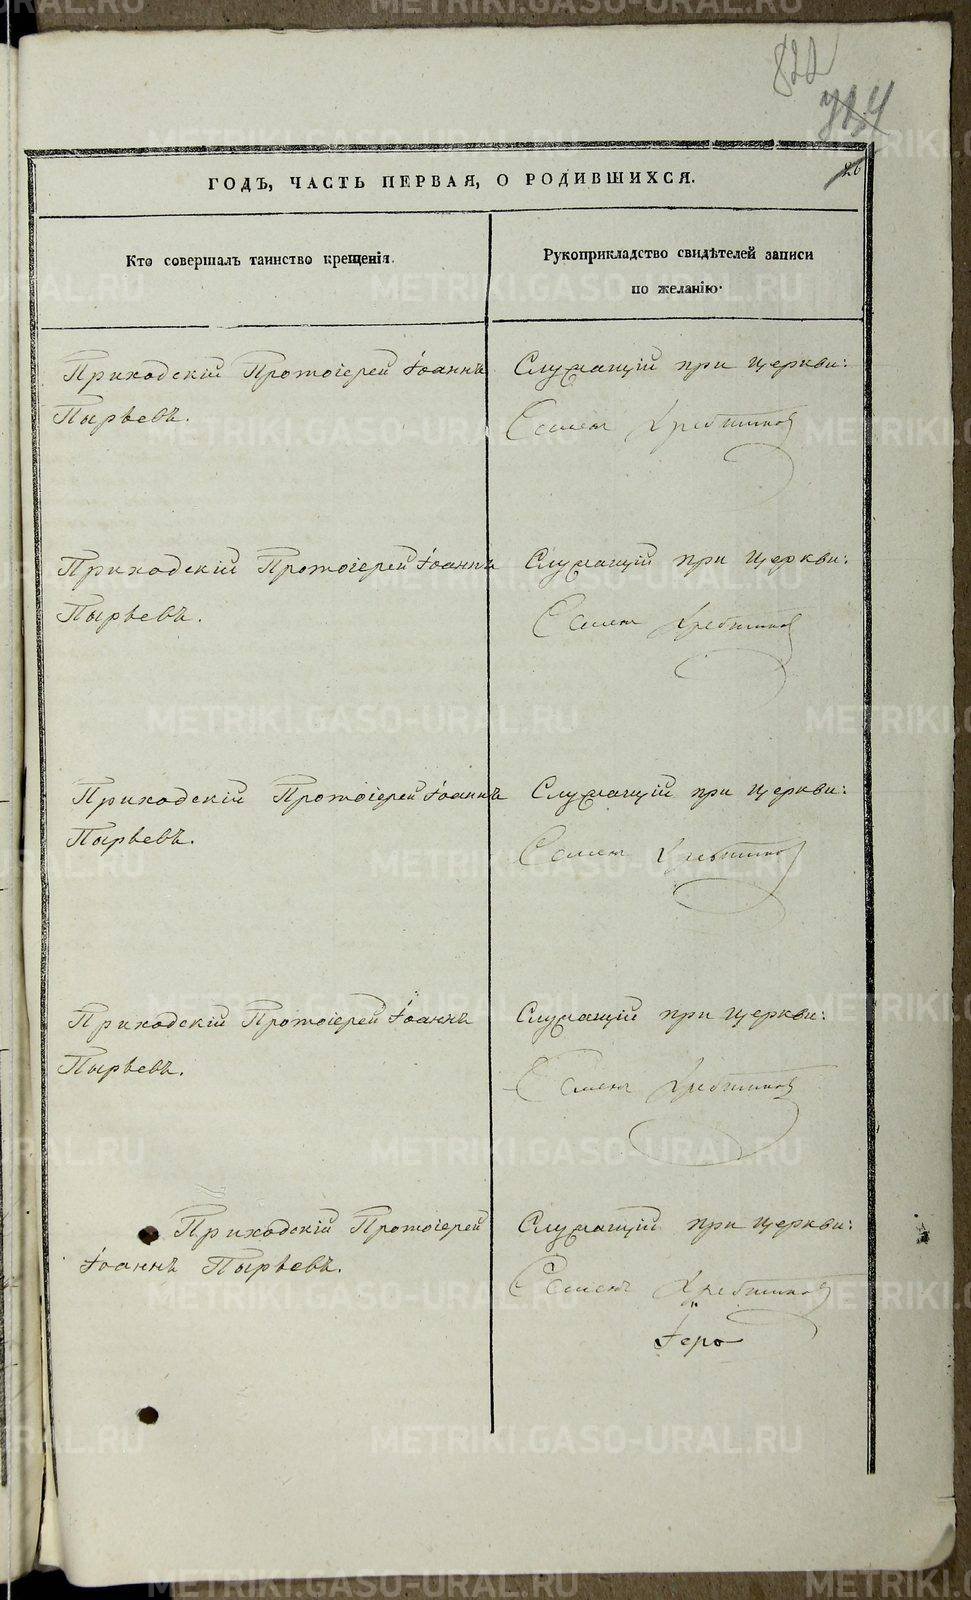 822
26
ГОДЪ, ЧАСТЬ ПЕРВАЯ, О РОДИВШИХСЯ.
Кто совершалъ таинство крещенія.
Рукоприкладство свидѣтелей записи
по желанію.
Приходскій Протоіерей Іоаннъ
Пырьевъ.
Служащій при церкви:
Семенъ
Приходскій Протоіерей Іоаннъ
Пырьевъ.
Служащій при церкви:
Семенъ
Приходскій Протоіерей Іоаннъ
Пырьевъ.
Служащій при церкви:
Семенъ
Приходскій Протоіерей Іоаннъ
Пырьевъ.
Служащій при церкви:
Семенъ
Приходскій Протоіерей
Іоаннъ Пырьевъ.
Служащій при церкви:
Семенъ
Іеро
METRIKI.GASO-URAL.RU